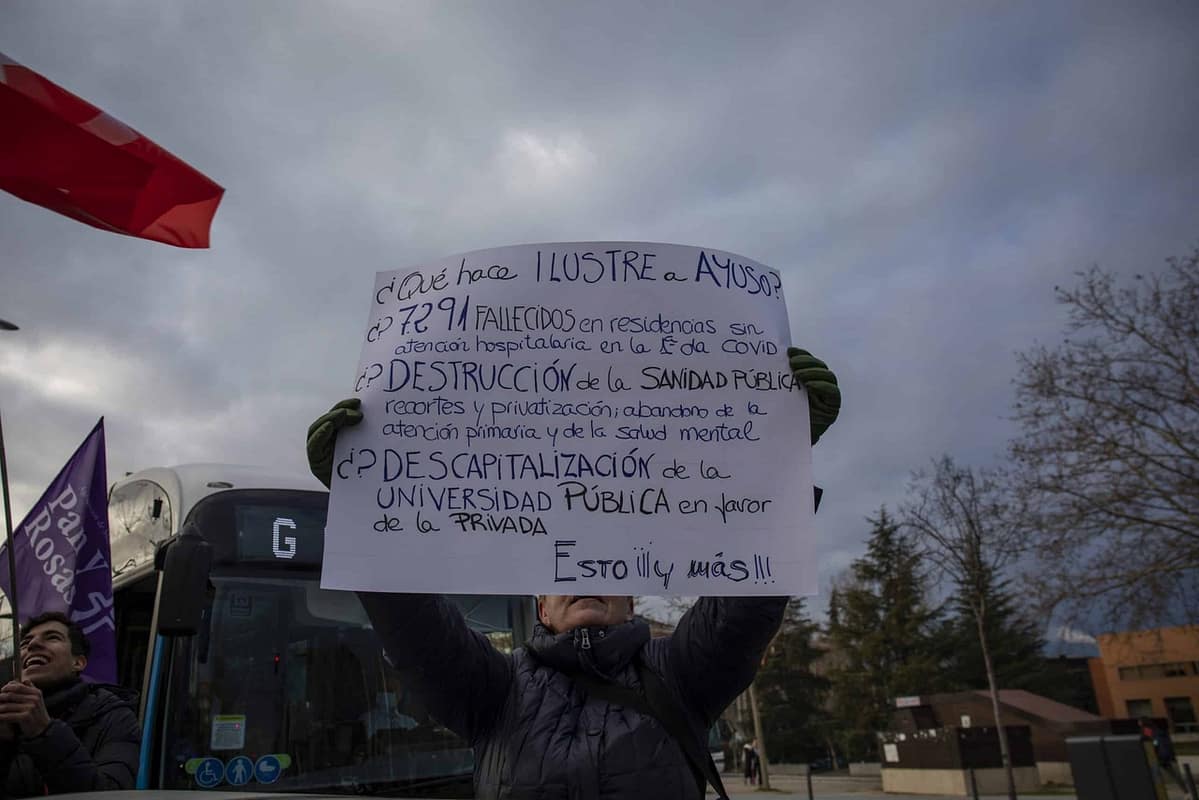 ¿Qué hace ILUSTRE a AYUSO?
¿? 7.291 FALLECIDOS en residencias sin
atención hospitalaria en la 1ª da COVID
¿? DESTRUCCIÓN de la SANIDAD PÚBLICA
recortes y privatización; abandono de la
atención primaria y de la salud mental
¿? DESCAPITALIZACIÓN de la
UNIVERSIDAD PÚBLICA en favor
de la PRIVADA
Esto ¡¡¡y más!!!
G
Pan y
Rosas